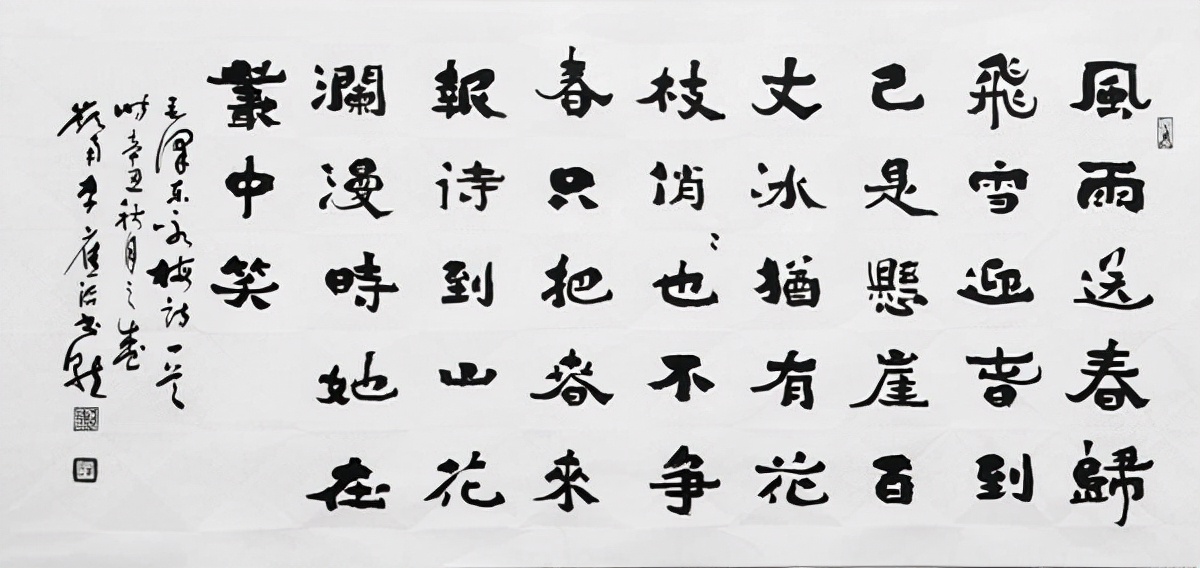 風雨送春歸
飛雪迎春到
已是懸崖百
丈冰猶有花
枝俏〻也不争
春只把春來
報待到山花
瀾漫時她在
叢中笑
毛澤东咏梅詩一首
時辛丑秋月之
嶺南李